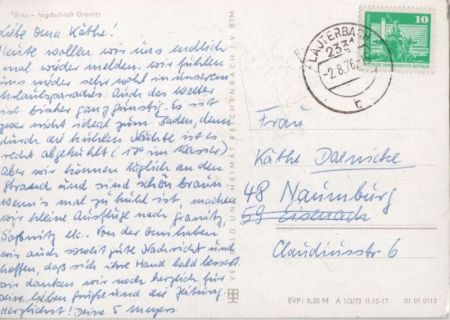 "Binz - Jagdschloß Granitz
Liebe Oma Käthe!
Heute wollen wir uns endlich
mal wieder melden. Wir fühlen
uns wieder sehr wohl in unserem
Urlaubsparadies. Auch das Wetter
ist bisher ganz günstig. Es ist
zwar nicht ideal zum Baden, denn
durch die kühlen Nächte ist es
recht abgekühlt (17° im Wasser)
Aber wir können täglich an den
Strand und sind schön braun.
Wenn's mal zu kühl ist, machen
wir kleine Ausflüge nach Granitz,
Saßnitz etc. Von der Omi haben
wir auch soweit gute Nachricht und
hoffen, daß sich ihre Hand bald bessert
Wir danken wir noch herzlich für
Deine lieben Grüße und die Zeitung.
Herzlichst! Deine 5 Meyers.
VERLAG BILD UND HEIMAT REICHENBACH I. V. BTM
LAUTERBACH
233
-2.8.76
c
10
Frau
Käthe
48 Naumburg
59 Eisenach
Claudiusstr 6
EVP: 0,20 M A 1/3/75 11-15-17 01 01 0113